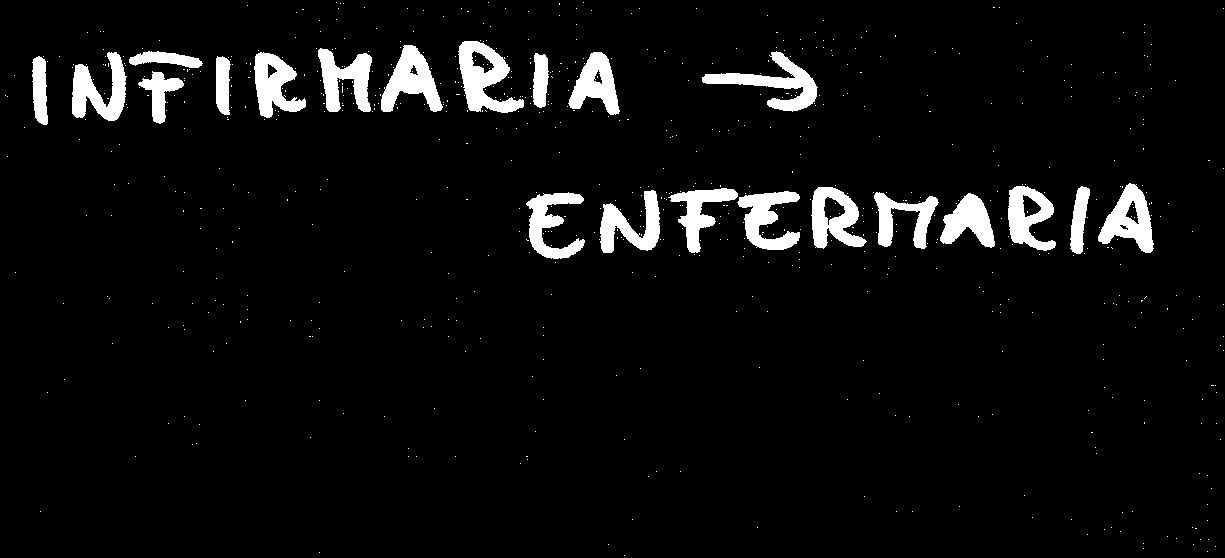 INFIRMARIA →
ENFERMARIA